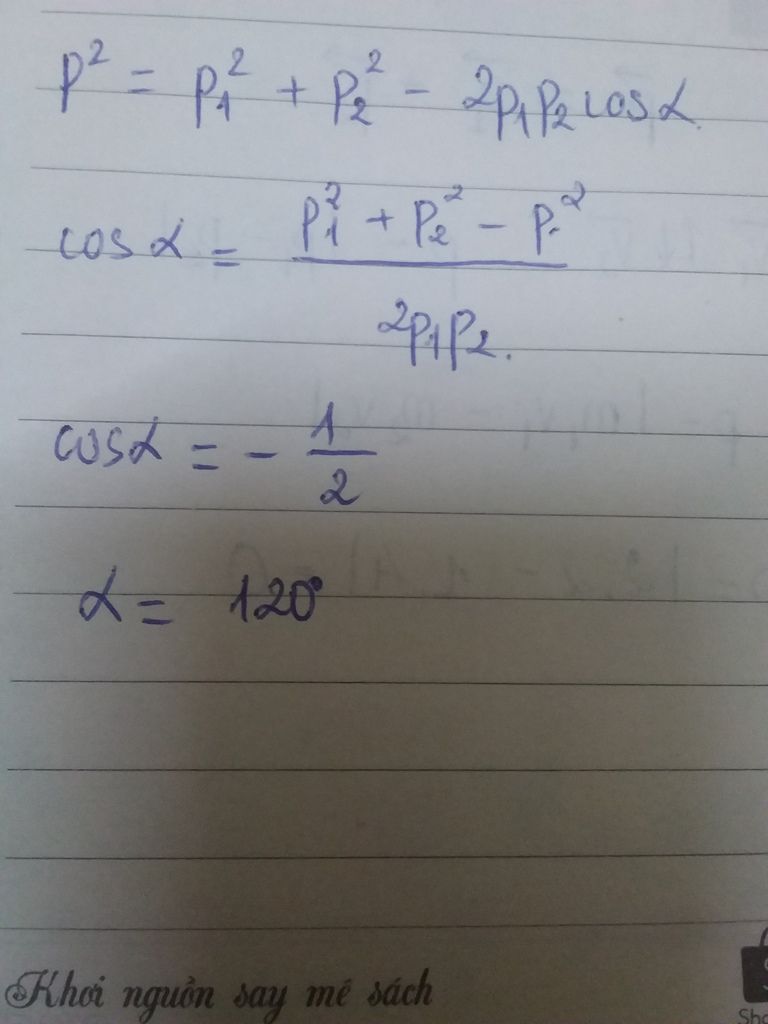 p² = p₁² + p₂² - 2p₁p₂ cos α.
cos α = p₁² + p₂² - p.²
2p₁p₂.
cos α = - 1/2
α = 120°
Khơi nguồn say mê sách